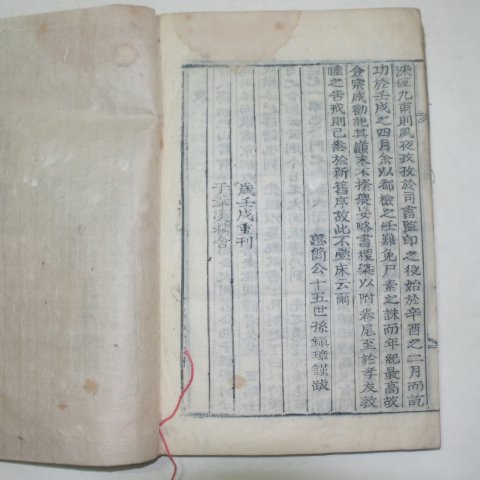 洙恒九甫則夙夜孜孜於司書監印之役始於辛酉之二月而訖
功於壬戌之四月余以都檢之任難免尸素之誅而年紀最高故
僉宗咸勸記其顚末不揆
妄略書
以附卷尾至於孝友敦
睦之告戒則已悉於新舊序故此不
床云爾
簡公十五世孫鎭
謹跋
歲壬戌重刊
于
溪精舍